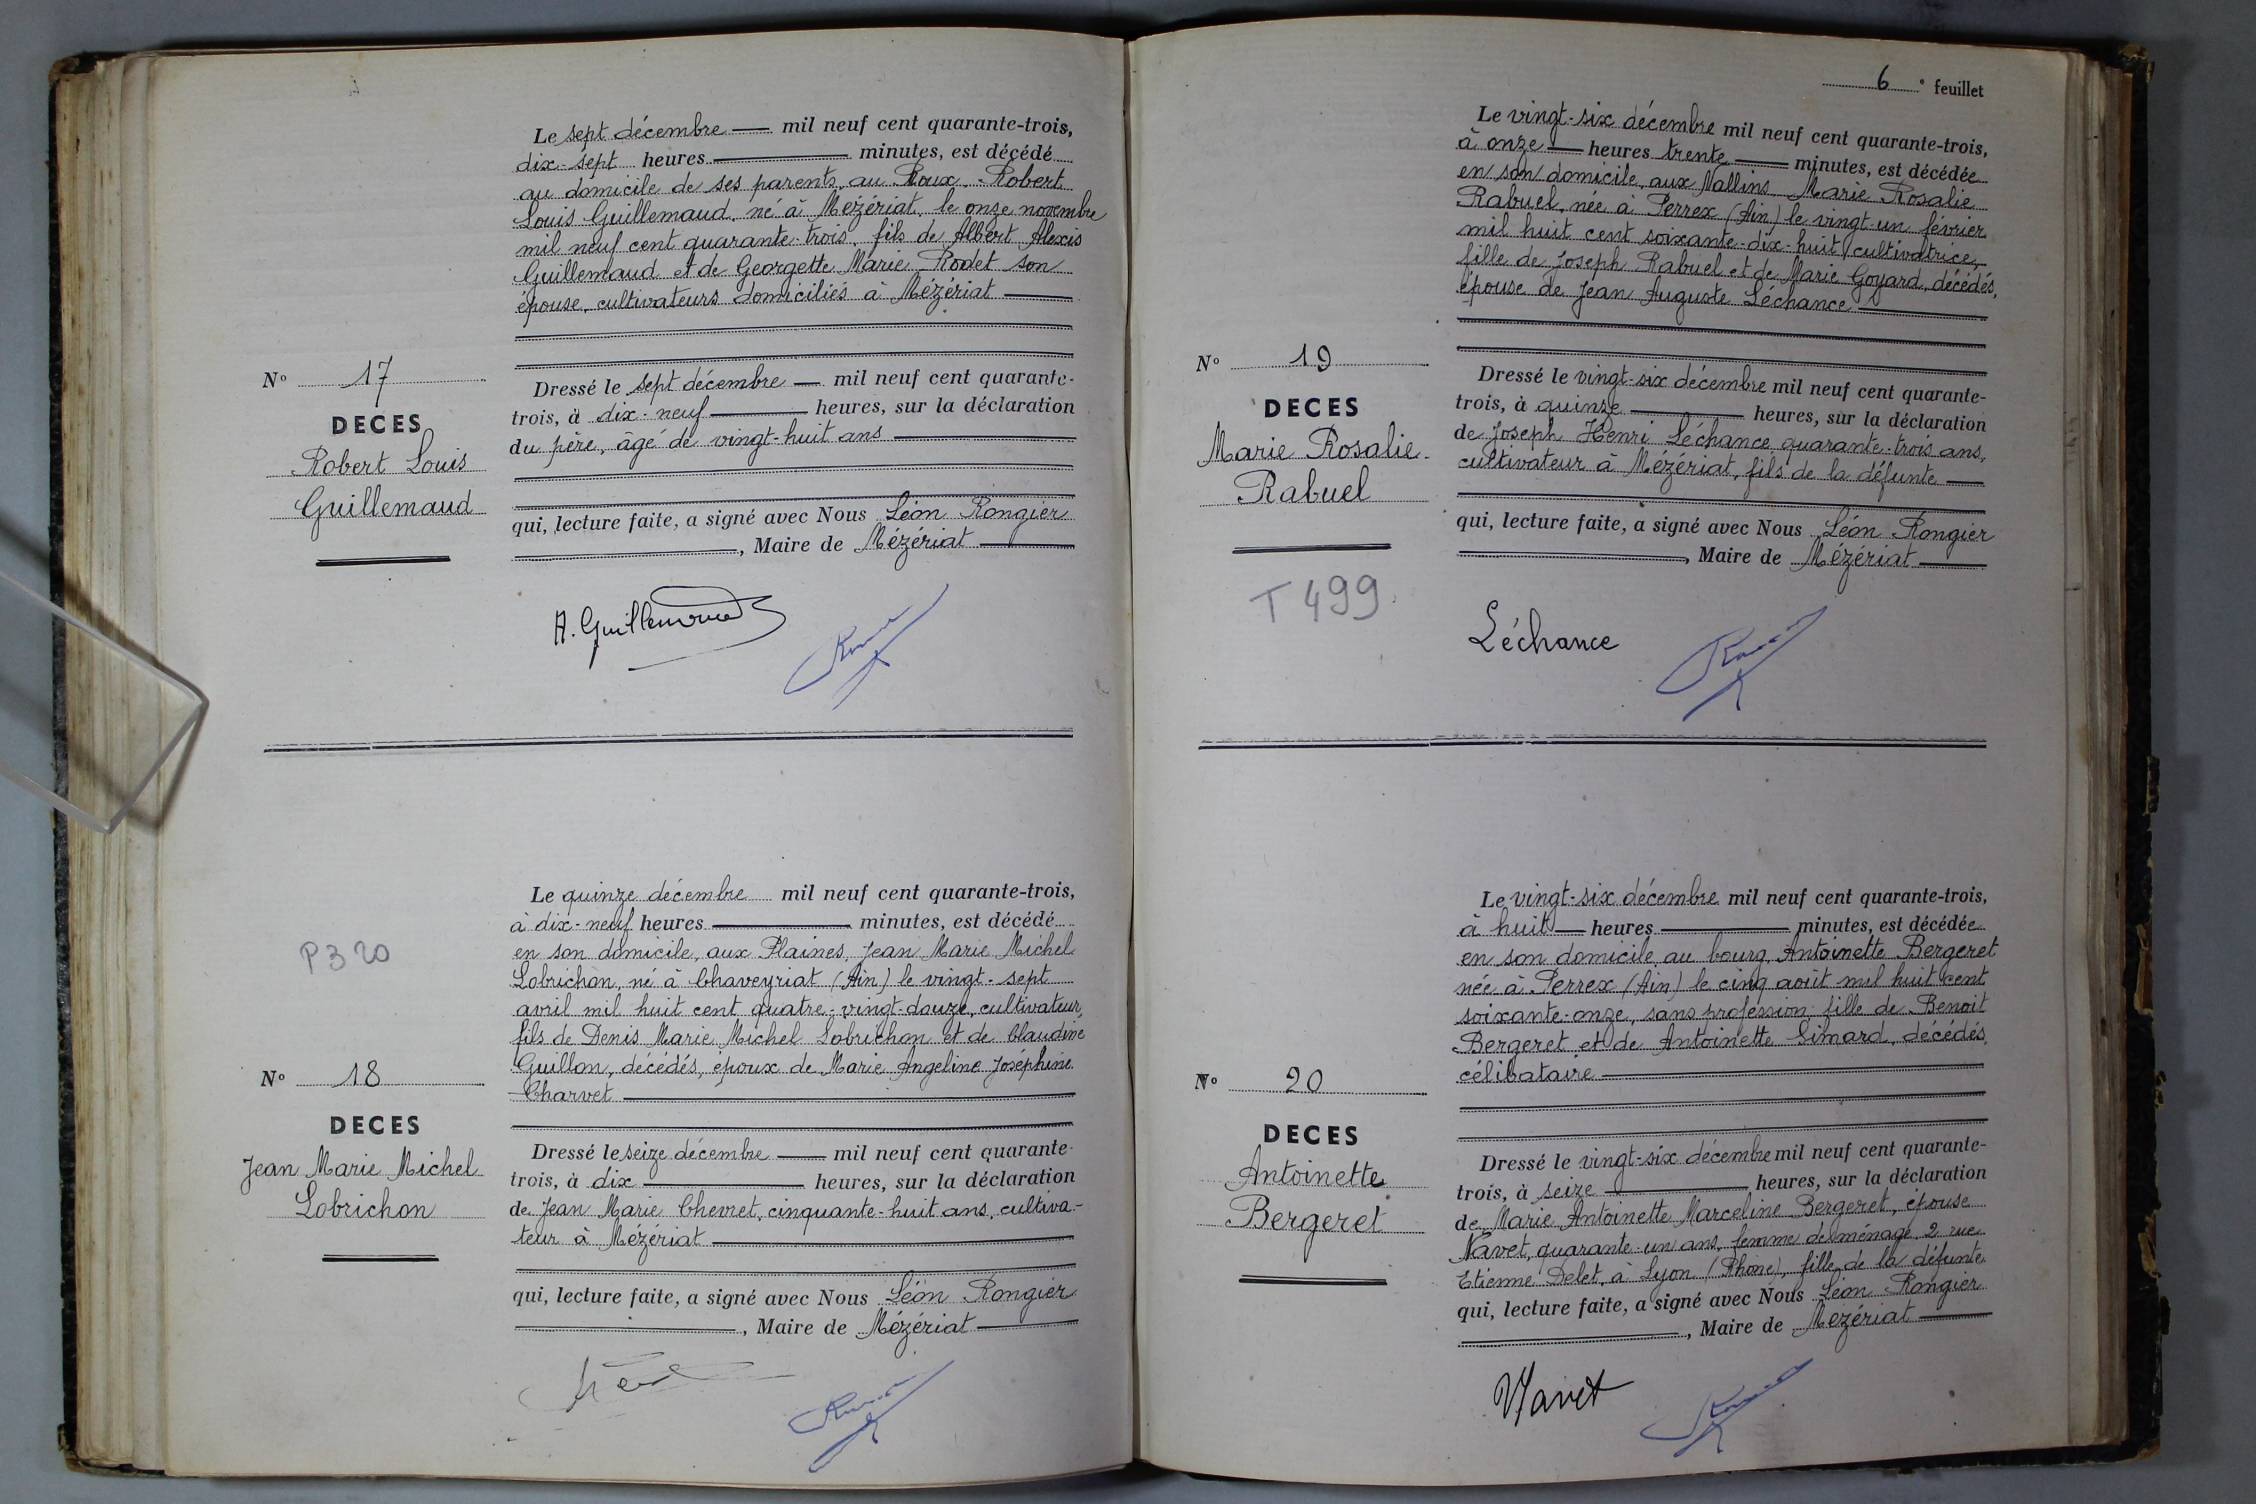 Le sept décembre mil neuf cent quarante-trois,
dix-sept heures minutes, est décédé
au domicile de ses parents, au Roux, Robert
Louis Guillemaud, né à Mézériat, le onze novembre
mil neuf cent quarante-trois, fils de Albert Alexis
Guillemaud et de Georgette Marie Rodet son
épouse, cultivateurs domiciliés à Mézériat
N° 17
DECES
Robert Louis
Guillemaud
Dressé le sept décembre mil neuf cent quarante-
trois, à dix-neuf heures, sur la déclaration
du père, âgé de vingt-huit ans
qui, lecture faite, a signé avec Nous Léon Rongier
, Maire de Mézériat
A. Guillemaud
P320
Le quinze décembre mil neuf cent quarante-trois,
à dix-neuf heures minutes, est décédé
en son domicile, aux Plaines, Jean Marie Michel
Lobrichon, né à Chaveyriat (Ain) le vingt-sept
avril mil huit cent quatre-vingt-douze, cultivateur,
fils de Denis Marie Michel Lobrichon et de Claudine
Guillon, décédés, époux de Marie Angeline Joséphine
Charvet
N° 18
DECES
Jean Marie Michel
Lobrichon
Dressé le seize décembre mil neuf cent quarante-
trois, à dix heures, sur la déclaration
de Jean Marie Chevret, cinquante-huit ans, cultiva-
teur à Mézériat
qui, lecture faite, a signé avec Nous Léon Rongier
, Maire de Mézériat
6 e feuillet
Le vingt-six décembre mil neuf cent quarante-trois,
à onze heures trente minutes, est décédée
en son domicile, aux Nallins Marie Rosalie
Rabuel, née à Perrex (Ain) le vingt-un février
mil huit cent soixante-dix-huit, cultivatrice,
fille de Joseph Rabuel et de Marie Goyard, décédés,
épouse de Jean Auguste Léchance
N° 19
DECES
Marie Rosalie
Rabuel
T 499
Dressé le vingt-six décembre mil neuf cent quarante-
trois, à quinze heures, sur la déclaration
de Joseph Henri Léchance, quarante-trois ans,
cultivateur à Mézériat, fils de la défunte
qui, lecture faite, a signé avec Nous Léon Rongier
, Maire de Mézériat
Léchance
Le vingt-six décembre mil neuf cent quarante-trois,
à huit heures minutes, est décédée
en son domicile au bourg, Antoinette Bergeret
née à Perrex (Ain) le cinq août mil huit cent
soixante-onze, sans profession, fille de Benoit
Bergeret et de Antoinette Simard, décédés,
célibataire
N° 20
DECES
Antoinette
Bergeret
Dressé le vingt-six décembre mil neuf cent quarante-
trois, à seize heures, sur la déclaration
de Marie Antoinette Marceline Bergeret, épouse
Navet, quarante-un ans, femme de ménage, 2 rue
Etienne Delet, à Lyon (Rhône), fille de la défunte
qui, lecture faite, a signé avec Nous Léon Rongier
, Maire de Mézériat
Navet